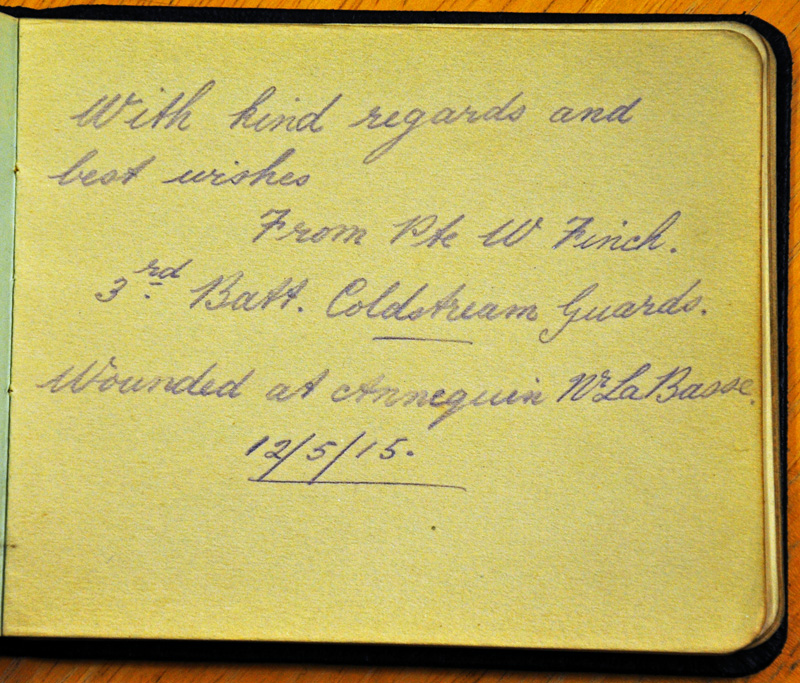 With kind regards and
best wishes
From Pte W Finch.
3rd Batt. Coldstream Guards.
Wounded at Annequin Nr La Basse.
12/5/15.